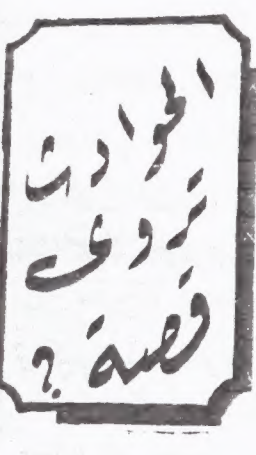 الحوادث
تروى
قصة ؟